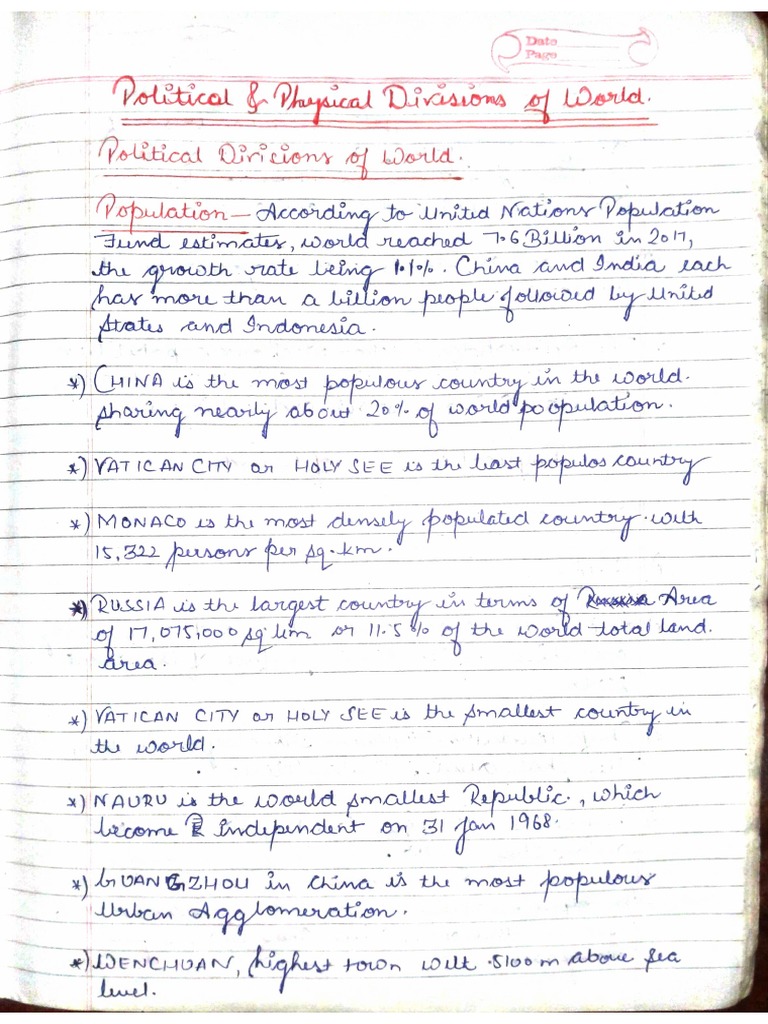 Date
Page
Political & Physical Divisions of World.
Political Divisions of World.
Population — According to United Nations Population
Fund estimates, world reached 7.6 Billion in 2017,
the growth rate being 1.1%. China and India each
has more than a billion people followed by United
States and Indonesia.
*) CHINA is the most populous country in the world.
sharing nearly about 20% of world poopulation.
*) VATICAN CITY or HOLY SEE is the least populos country
*) MONACO is the most densely populated country with
15,322 persons per sq. km.
*) RUSSIA is the largest country in terms of Area
of 17,075,000 sq km or 11.5% of the world total land.
area.
*) VATICAN CITY or HOLY SEE is the smallest country in
the world.
*) NAURU is the world smallest Republic, which
become independent on 31 Jan 1968.
*) GUANGZHOU in China is the most populous
Urban Agglomeration.
*) WENCHUAN, highest town with 5100 m above sea
level.